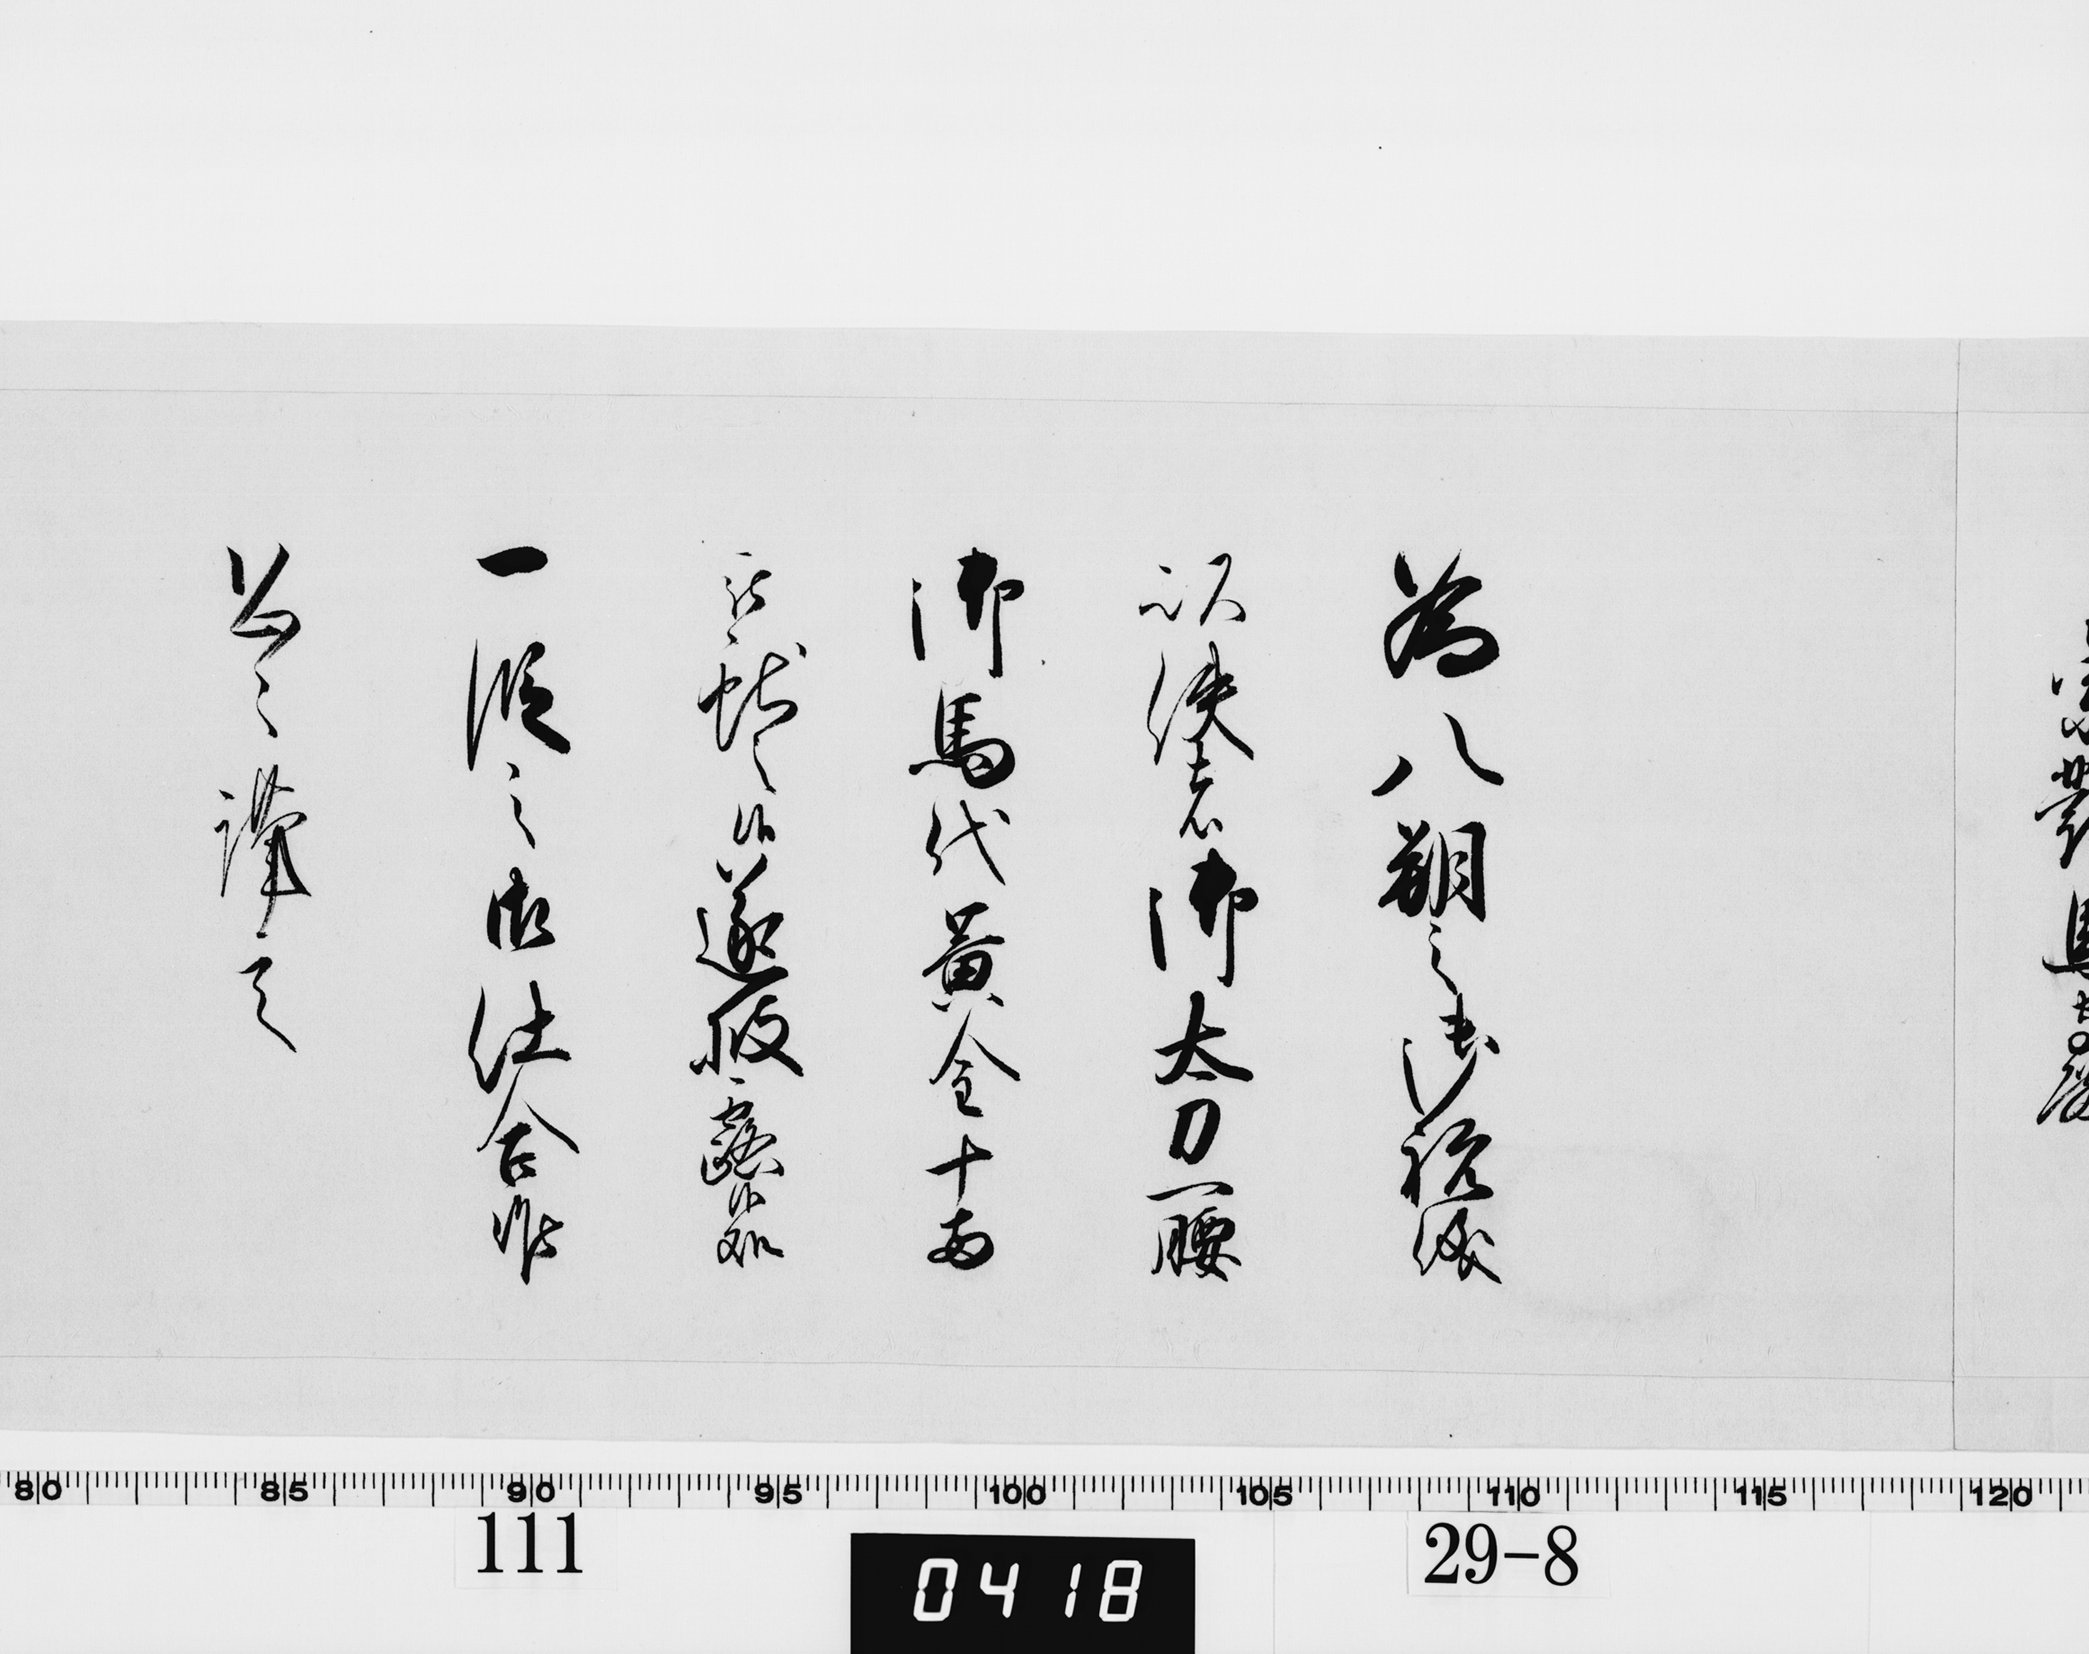 宗對馬守殿
為八朔之御祝儀
以使者御太刀一腰
御馬代黄金十両
被献之候遂披露候処
一段之御仕合
恐々謹言
80 85 90 95 100 105 110 115 120
111
0418
29-8